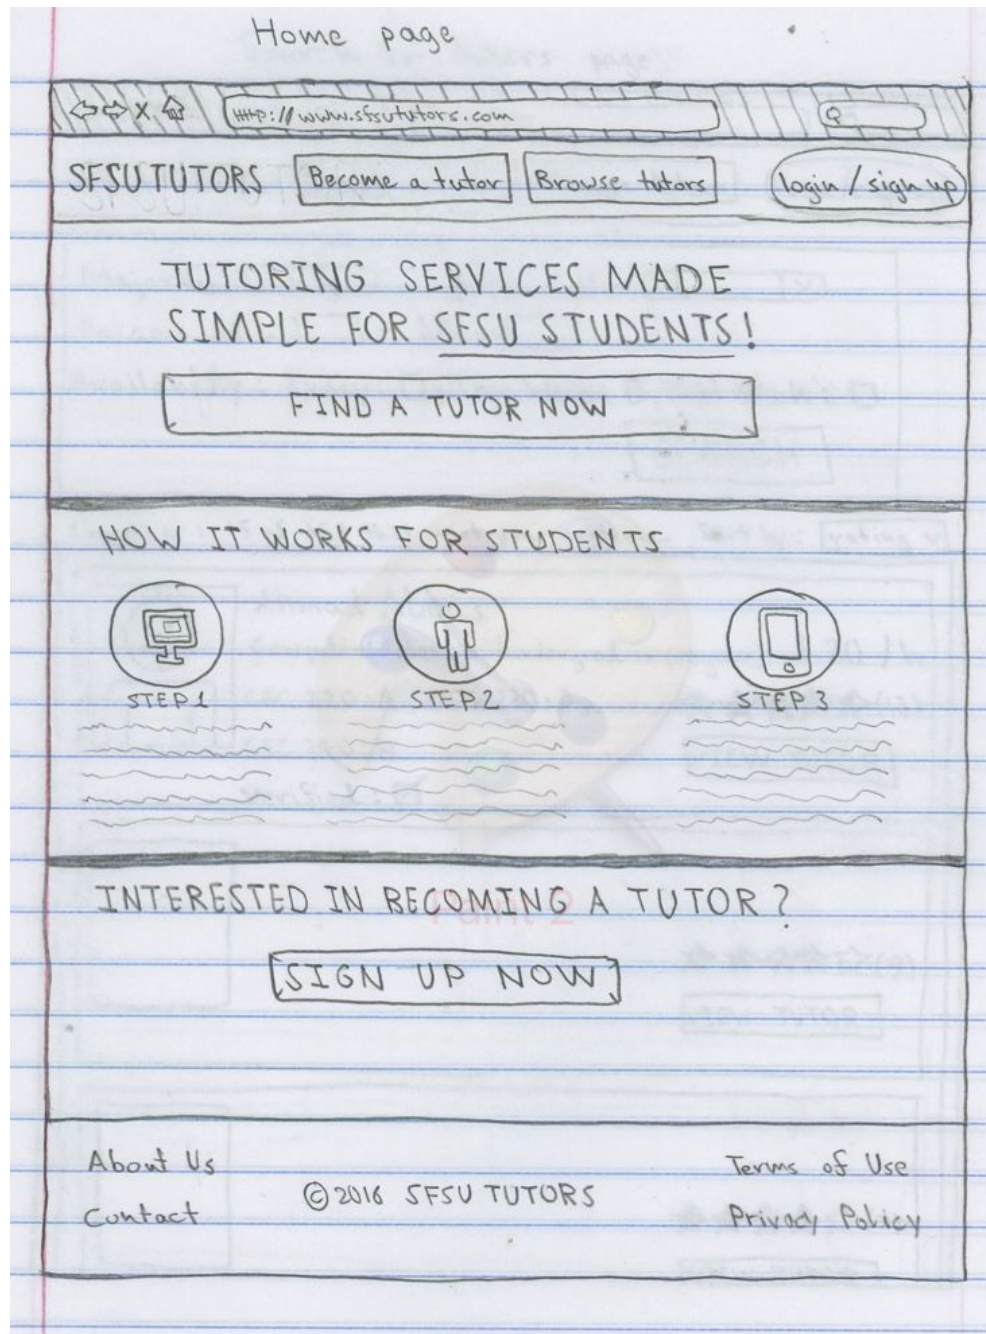 Home page
http://www.sfsututors.com
SFSUTUTORS Become a tutor Browse tutors login / sign up
TUTORING SERVICES MADE
SIMPLE FOR SFSU STUDENTS!
FIND A TUTOR NOW
HOW IT WORKS FOR STUDENTS
STEP 1 STEP 2 STEP 3
INTERESTED IN BECOMING A TUTOR?
Paint 2
SIGN UP NOW
About Us Terms of Use
© 2016 SFSU TUTORS
Contact Privacy Policy